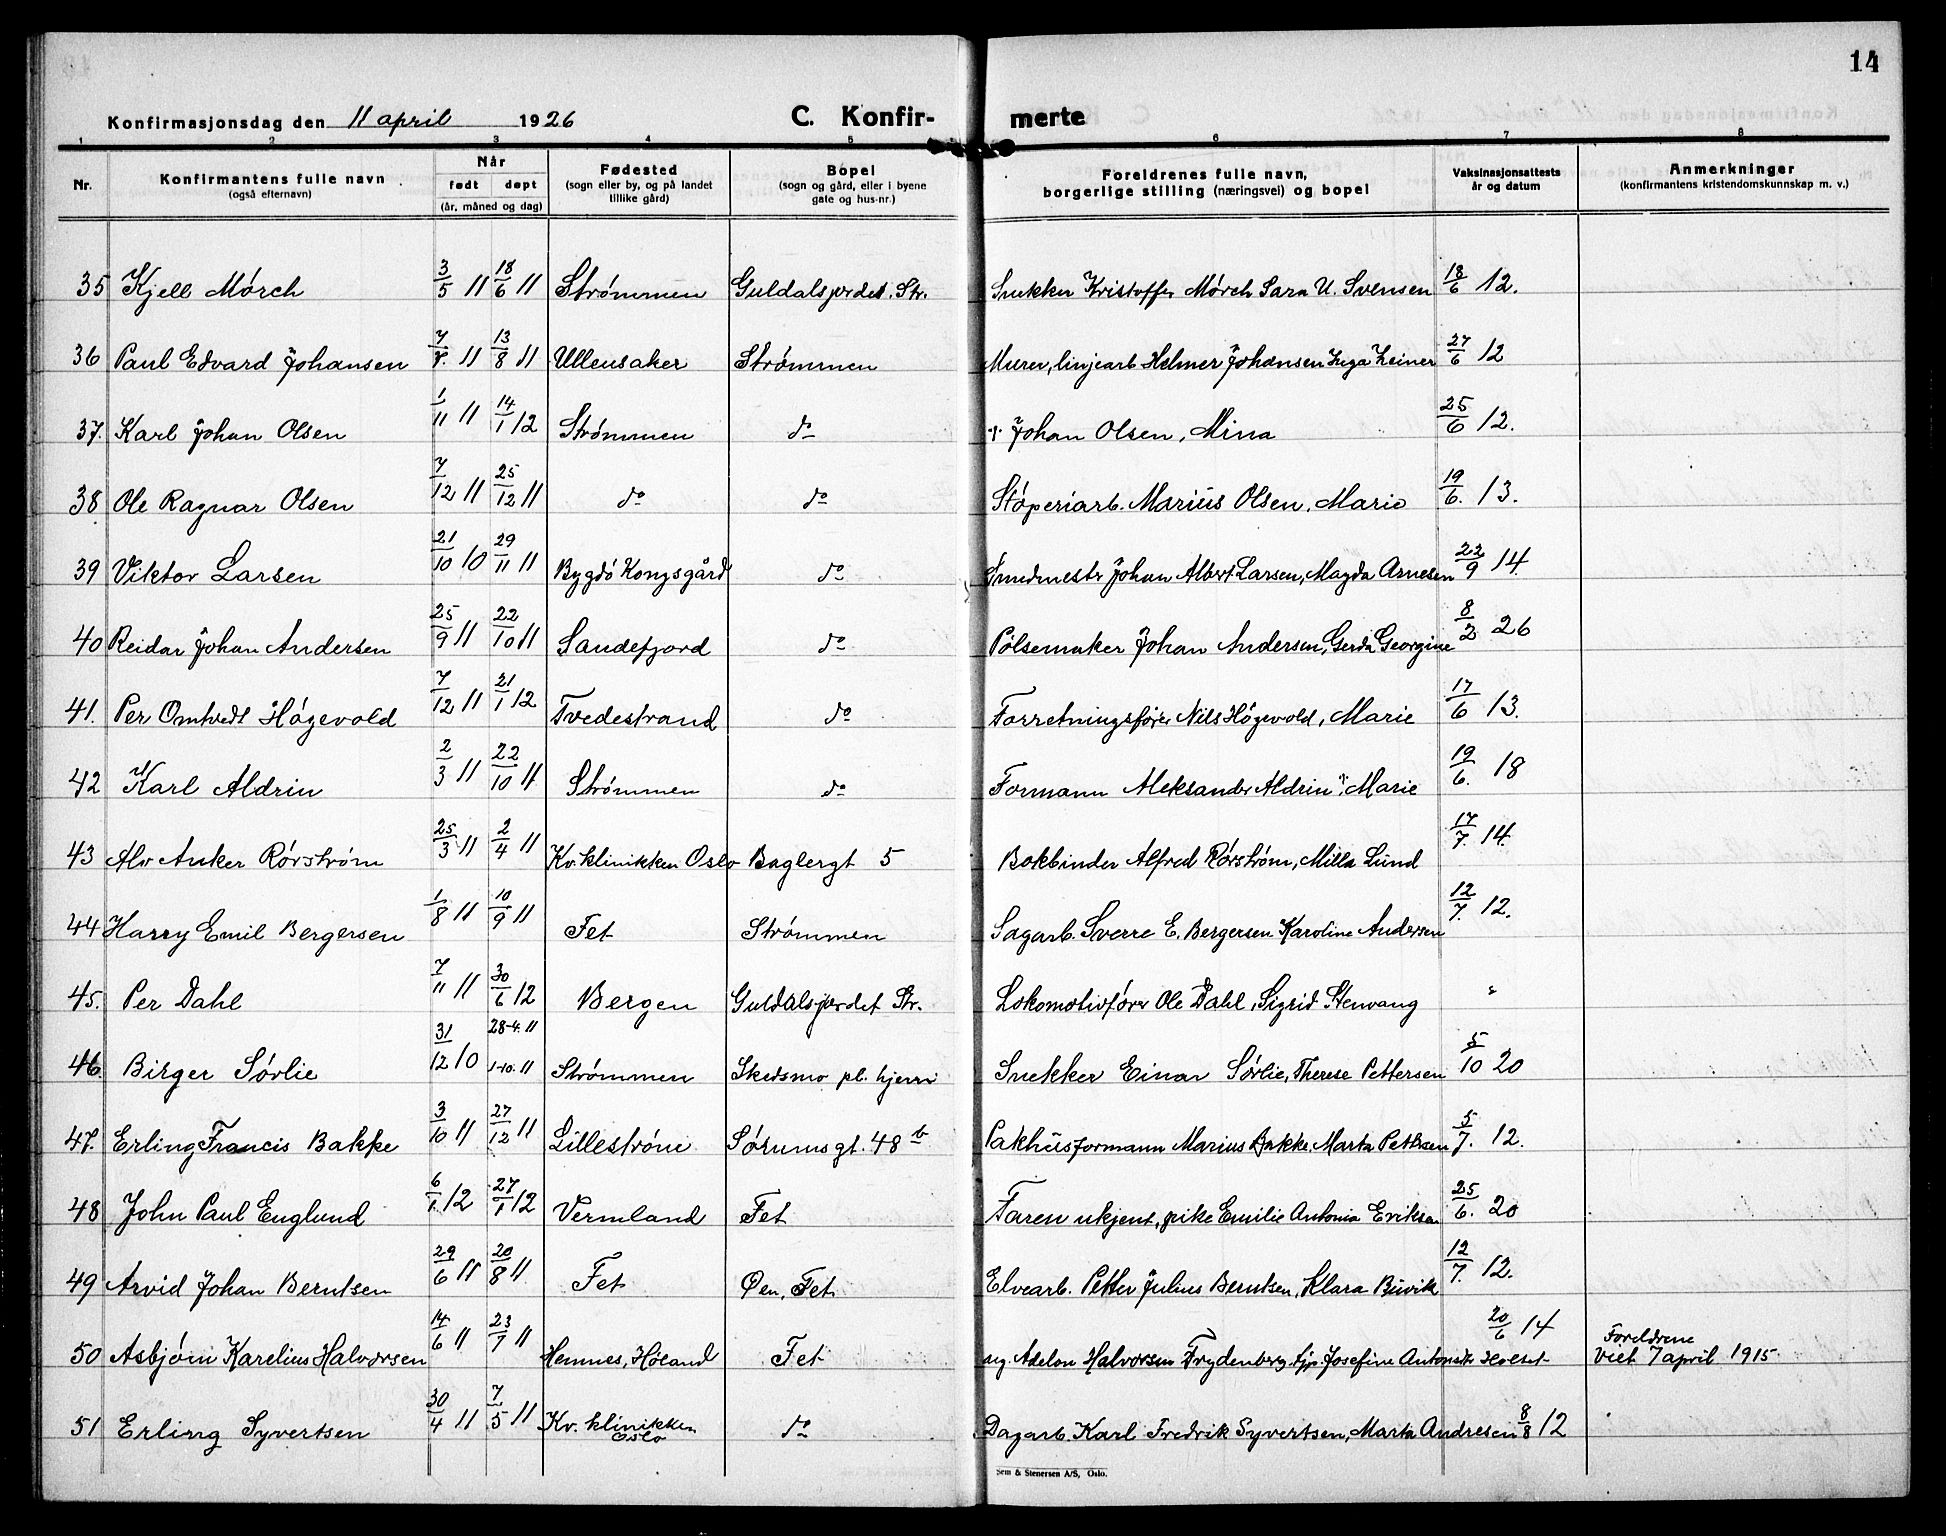 14
Konfirmasjonsdag den 11 april 1926 C. Konfir- merte
1 2 3 4 5 6 7 8
Nr. Konfirmantens fulle navn (også efternavn) Når født døpt (år, måned og dag) Fødested (sogn eller by, og på landet tillike gård) Bopel (sogn og gård, eller i byene gate og hus-nr.) Foreldrenes fulle navn, borgerlige stilling (næringsvei) og bopel Vaksinasjonsattests år og datum Anmerkninger (konfirmantens kristendomskunnskap m. v.)
35 Kjell Mórch 3/5 11 18/6 11 Strómmen Guldalsjordet. Str. Snekker Kristoffer Mórch Sara U. Svensen 18/6 12.
36 Paul Edvard Johansen 7/7. 11 13/8 11 Ullensaker Strómmen Murer, linjearb Helmer Johansen Inga Zeiner 27/6 12
37. Karl Johan Olsen 1/11 11 14/1 12 Strómmen do Johan Olsen, Mina 25/6 12.
38 Ole Ragnar Olsen 7/12 11 25/12 11 do do Stóperiarb. Marius Olsen, Marie 19/6. 13.
39 Viktor Larsen 21/10 10 29/11 11 Bygdó Kongsgård do Smedmestr Johan Albert Larsen, Magda Arnesen 22/9 14.
40 Reidar Johan Andersen 25/9 11 22/10 11 Sandefjord do Pólsemaker Johan Andersen, Gerda Georgine 8/2 26
41. Per Omtvedt Hógevold 7/12 11 21/1 12 Tvedestrand do Forretningsfører Nils Hógevold, Marie 17/6 13.
42 Karl Aldrin 2/3 11 22/10 11 Strómmen do Formann Aleksander Aldrin, Marie 19/6. 18
43 Alv Anker Rórstróm 25/3 11 2/4 11 Kv. klinikken Oslo Baglergt 5 Bokbinder Alfred Rórstróm, Milla Lund 17/7. 14.
44 Harry Emil Bergersen 1/8 11 10/9 11 Fet Strómmen Sagarb. Sverre E. Bergersen Karoline Andersen 12/7. 12.
45. Per Dahl 7/11 11 30/6 12 Bergen Guldalsjordet Str. Lokomotivfórer Ole Dahl, Sigrid Stenvang "
46. Birger Sórlie 31/12 10 28-4. 11 1-10. 11 Strómmen Skedsmo pl. hjem Snekker Einar Sórlie, Therese Pettersen 5/10 20
47. Erling Francis Bakke 3/10 11 27/12 11 Lillestróm Sórumsgt. 48 b Pakhusformann Marius Bakke, Marta Pettersen 5/7. 12.
48 John Paul Englund 6/1. 12 27/1 12 Vermland Fet Faren ukjent, pike Emilie Antonia Eriksen 25/6. 20
49 Arvid Johan Berntsen 29/6 11 20/8 11 Fet Øen, Fet. Elvearb. Petter Julius Berntsen, Klara Buvik 12/7. 12.
50 Asbjórn Karelius Halvorsen 14/6 11 23/7 11 Hemnes, Hóland Fet ug. Adelon Halvorsen Frydenberg, tjp Josefine Holset 20/6 14 Foreldrene viet 7 april 1915.
51 Erling Syvertsen 30/4 11 7/5 11 Kv. klinikken Oslo do Dagarb. Karl Fredrik Syvertsen, Marta Andresen 8/8 12
Sem & Stenersen A/S, Oslo.